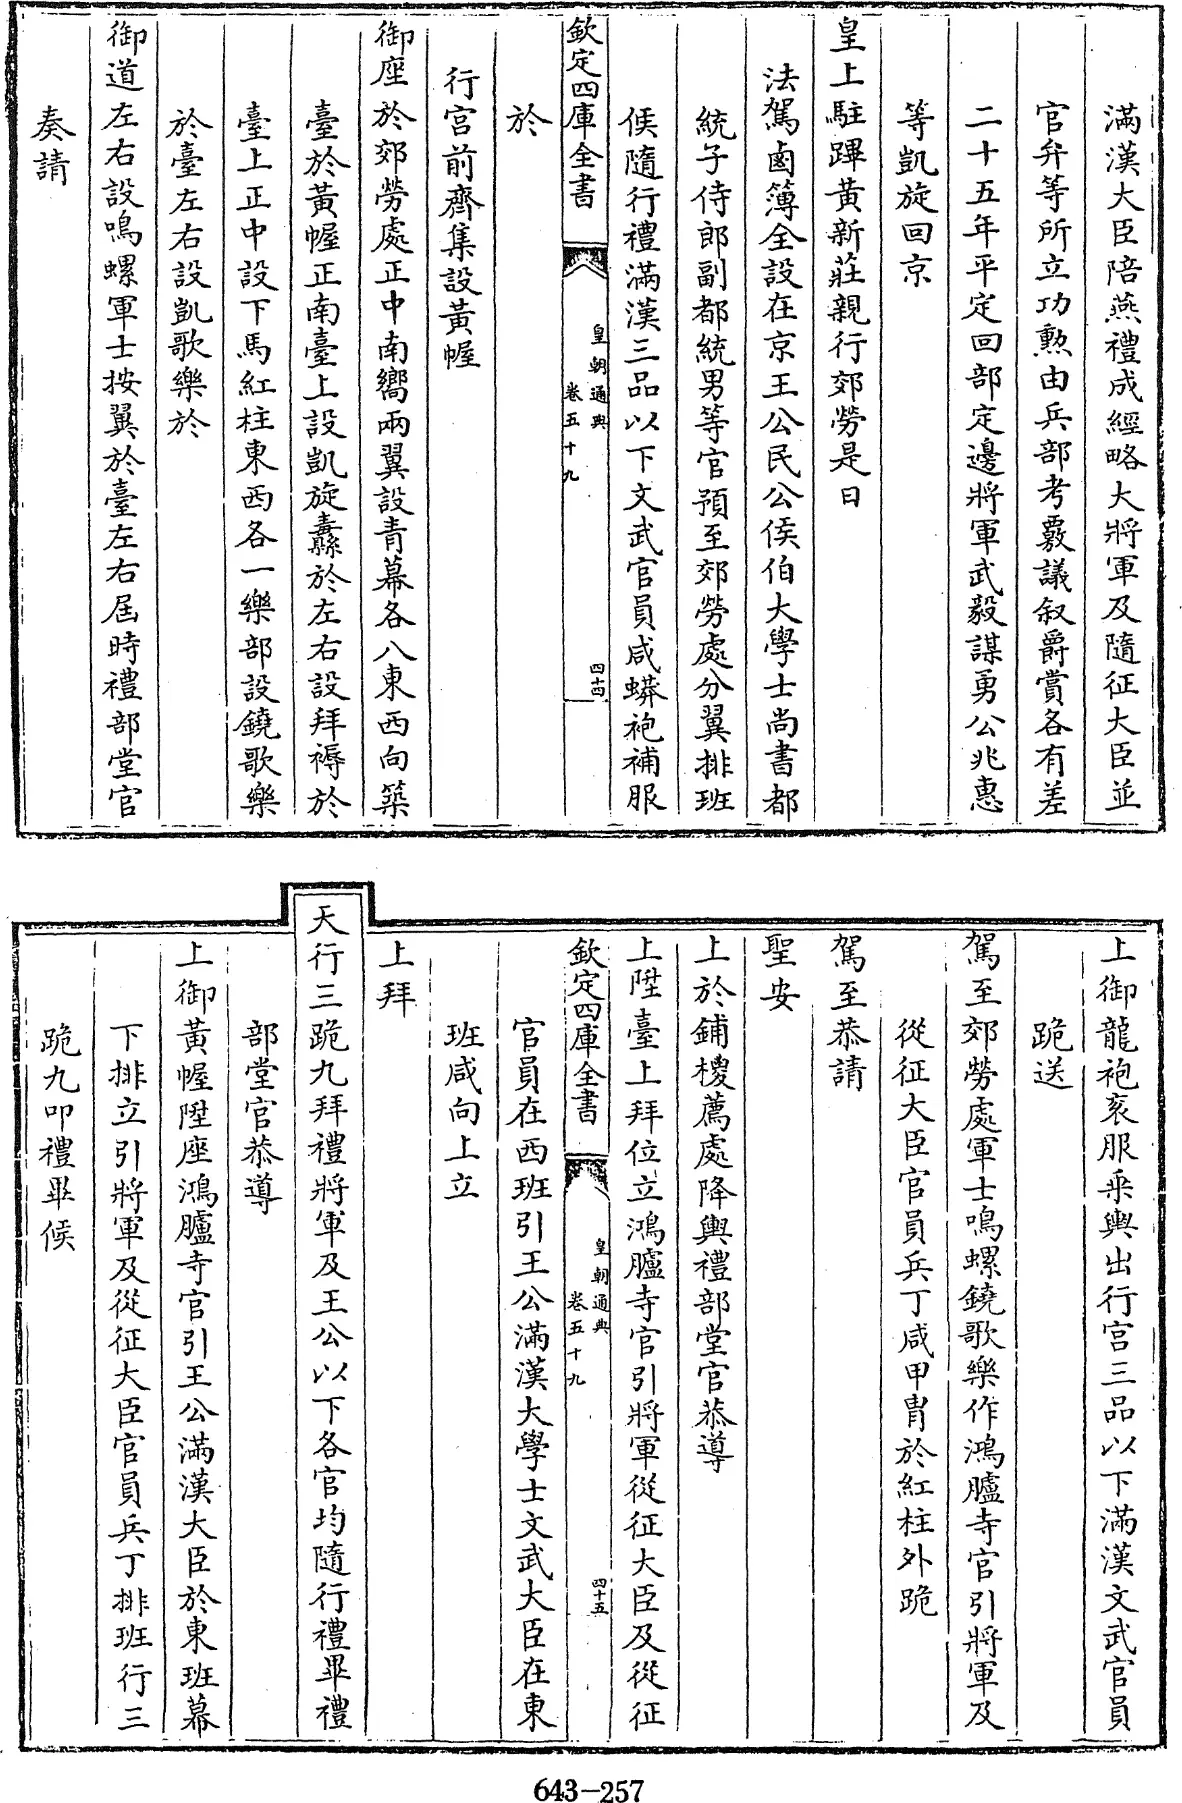 滿漢大臣陪燕禮成經略大將軍及隨征大臣並
官弁等所立功勲由兵部考覈議叙爵賞各有差
二十五年平定回部定邊將軍武毅謀勇公兆惠
等凱旋回京
皇上駐蹕黄新莊親行郊勞是日
法駕鹵簿全設在京王公民公侯伯大學士尚書都
統子侍郎副都統男等官預至郊勞處分翼排班
候隨行禮滿漢三品以下文武官員咸蟒袍補服
欽定四庫全書
皇朝通典
卷五十九
四十四
於
行宫前齊集設黄幄
御座於郊勞處正中南嚮兩翼設青幕各八東西向築
臺於黄幄正南臺上設凱旋纛於左右設拜褥於
臺上正中設下馬紅柱東西各一樂部設鐃歌樂
於臺左右設凱歌樂於
御道左右設鳴螺軍士按翼於臺左右屆時禮部堂官
奏請
上御龍袍衮服乗輿出行宫三品以下滿漢文武官員
跪送
駕至郊勞處軍士鳴螺鐃歌樂作鴻臚寺官引將軍及
從征大臣官員兵丁咸甲胄於紅柱外跪
駕至恭請
聖安
上於鋪椶薦處降輿禮部堂官恭導
上陞臺上拜位立鴻臚寺官引將軍從征大臣及從征
欽定四庫全書
皇朝通典
卷五十九
四十五
官員在西班引王公滿漢大學士文武大臣在東
班咸向上立
上拜
天行三跪九拜禮將軍及王公以下各官均隨行禮畢禮
部堂官恭導
上御黄幄陞座鴻臚寺官引王公滿漢大臣於東班幕
下排立引將軍及從征大臣官員兵丁排班行三
跪九叩禮畢候
643-257